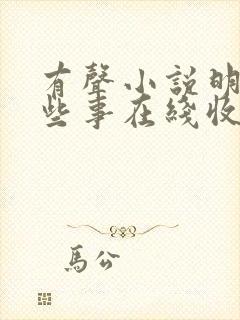 有聲小説明
些事在綫收
馬公